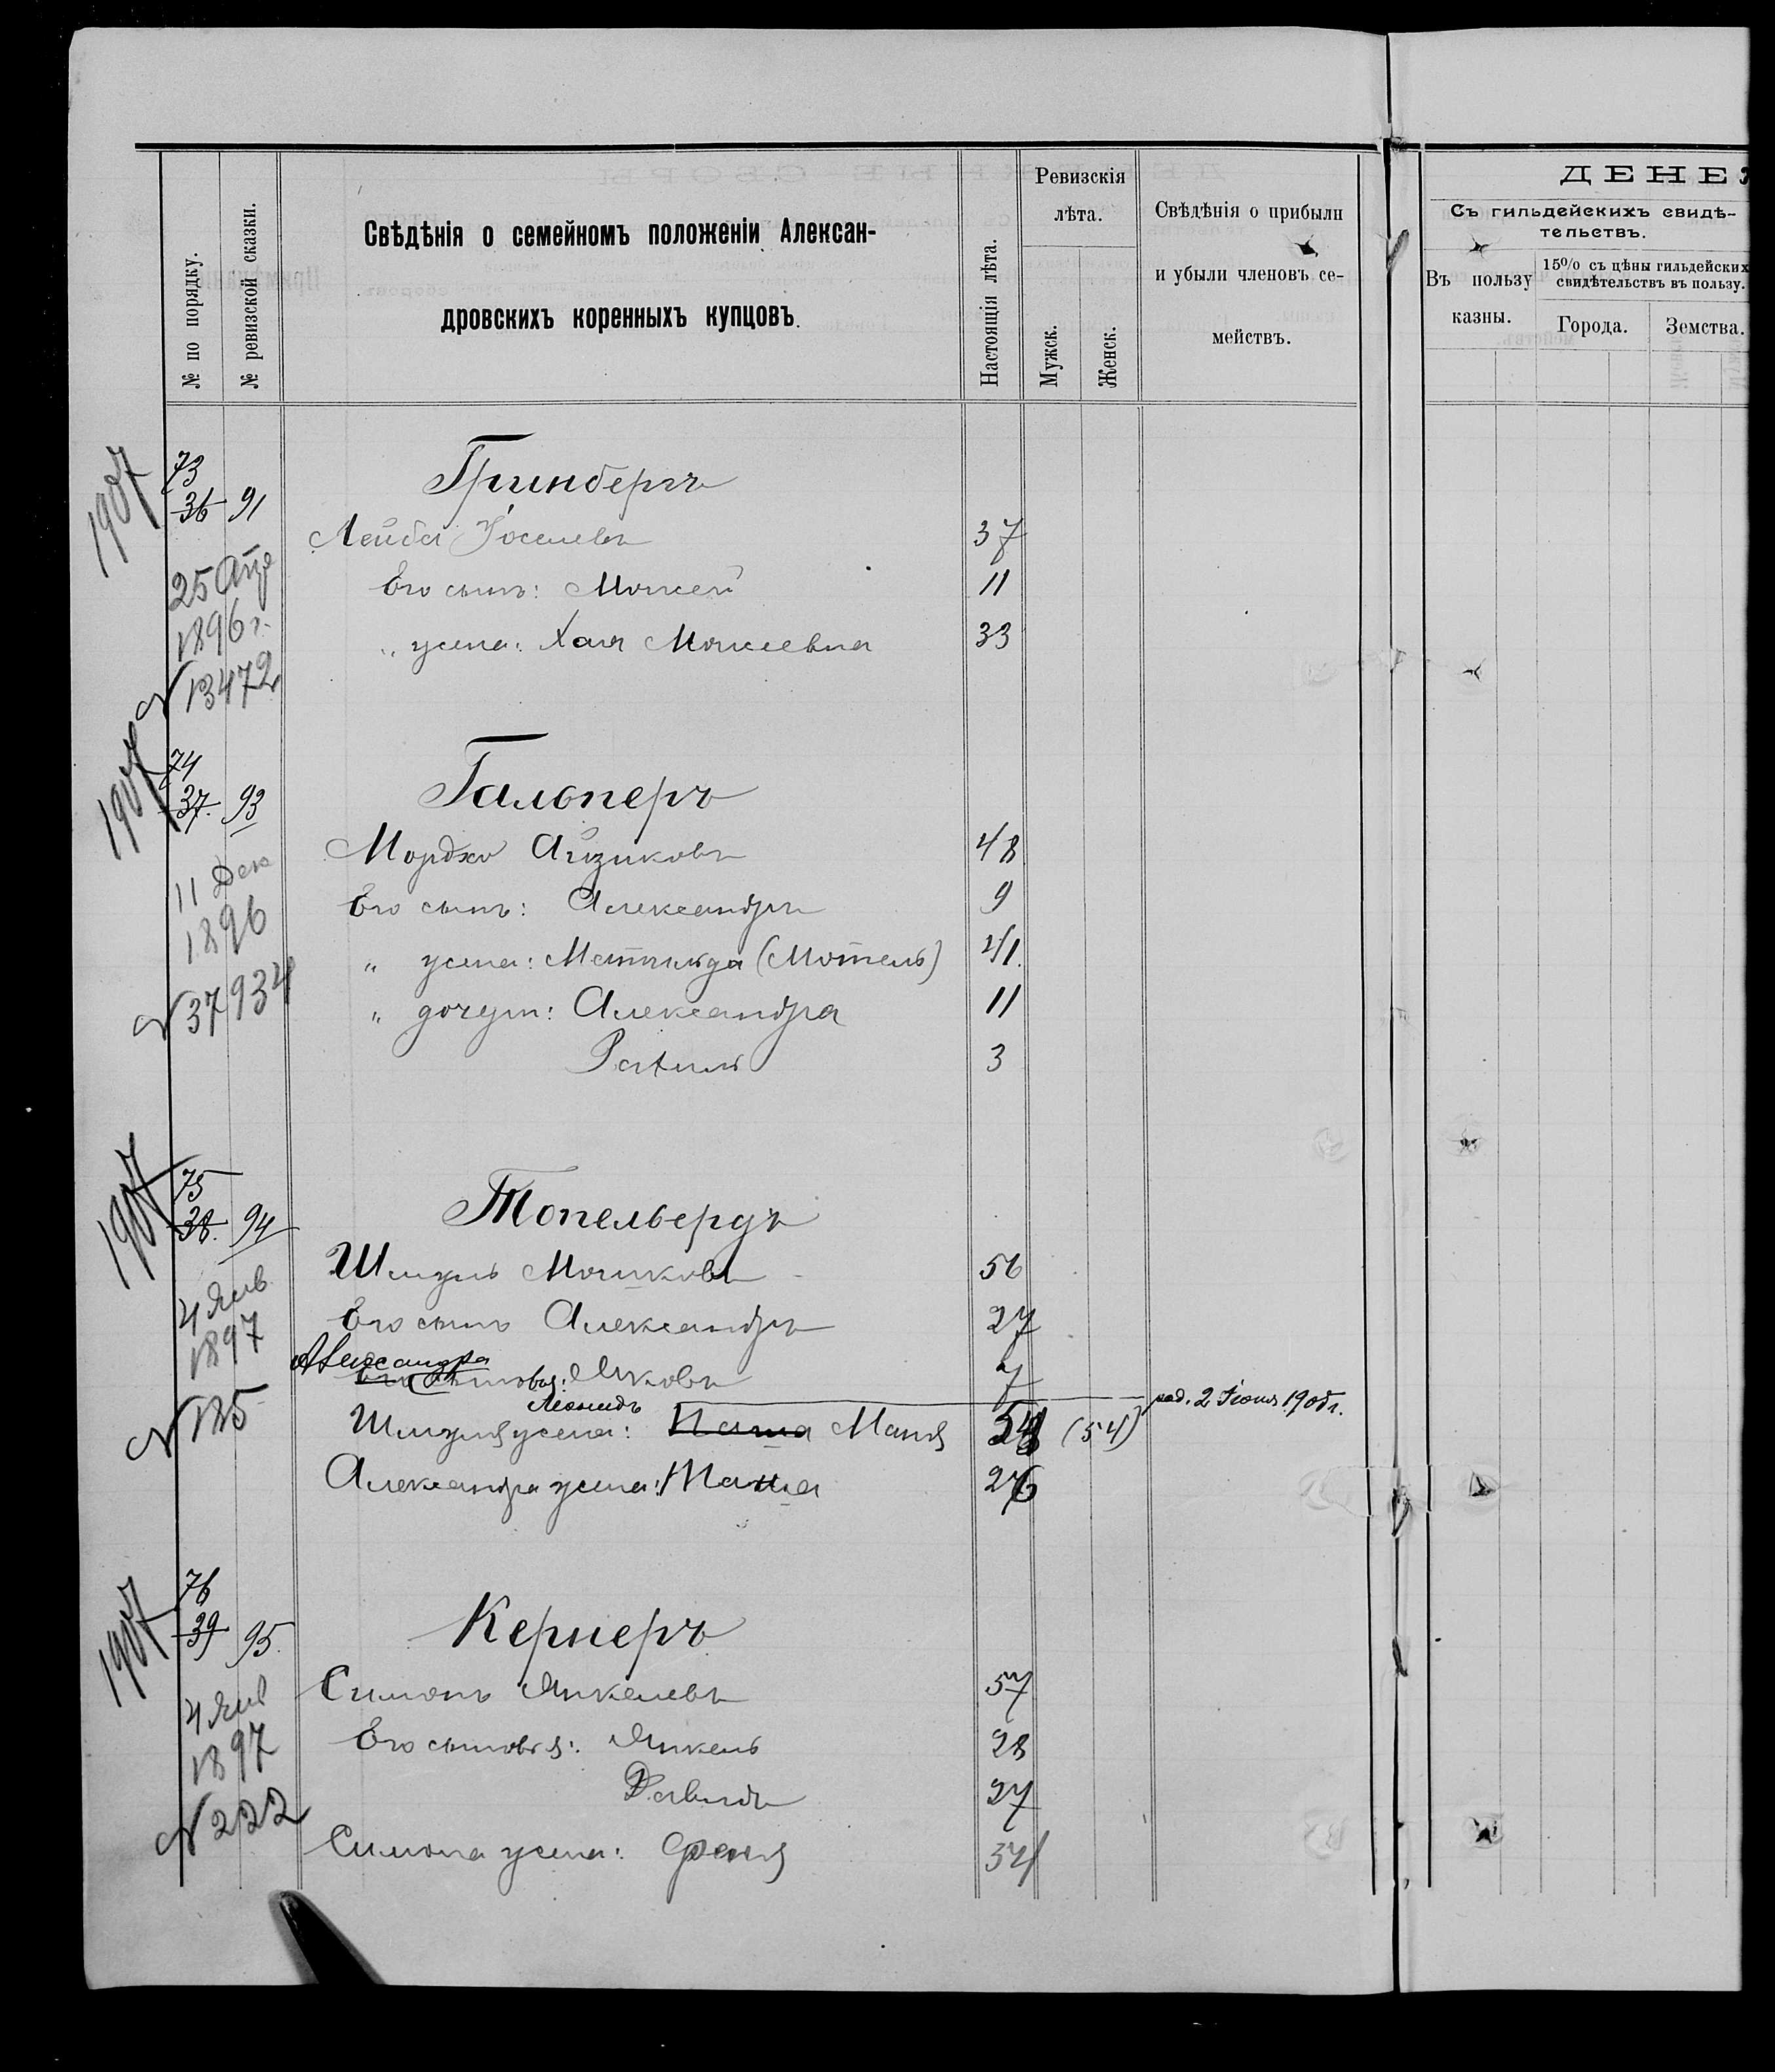 № по порядку.
№ ревизской сказки.
Свѣдѣнія о семейномъ положеніи Алексан-
дровскихъ коренныхъ купцовъ.
Настоящія лѣта.
Ревизскія
лѣта.
Мужск.
Женск.
Свѣдѣнія о прибыли
и убыли членовъ се-
мействъ.
ДЕНЕ
Съ гильдейскихъ свидѣ-
тельствъ.
Въ пользу
казны.
15% съ цѣны гильдейских
свидѣтельствъ въ пользу.
Города.
Земства.
1907
73
36 91
Гринбергъ
Лейба Іоселевъ 37
25 Апр
1896 г.
№ 13472
Его сынъ: Моисей 11
„ жена: Хая Моисеевна 33
1907
74
37. 93
Гальперъ
Мордко Айзиковъ 48
11 Дек
1896
№ 37934
Его сынъ: Александръ 9
„ жена: Матильда (Мотель) 41.
„ дочери: Александра 11
Рахиль 3
1907
75
38. 94
Топельбергъ
Шмуль Мошковъ 56
4 Янв
1897
№ 185
Его сынъ Александръ 27
Александра
Его сыновья: Яковъ 7
Леонидъ род. 2 Іюня 1906 г.
Шмуля жена: Паша Маня 54 (54)
Александра жена: Маша 26
1907
76
39 95.
Кернеръ
Симонъ Янкелевъ 57
4 Янв
1897
№ 222
Его сыновья: Янкель 28
Давидъ 27
Симона жена: Феня 54